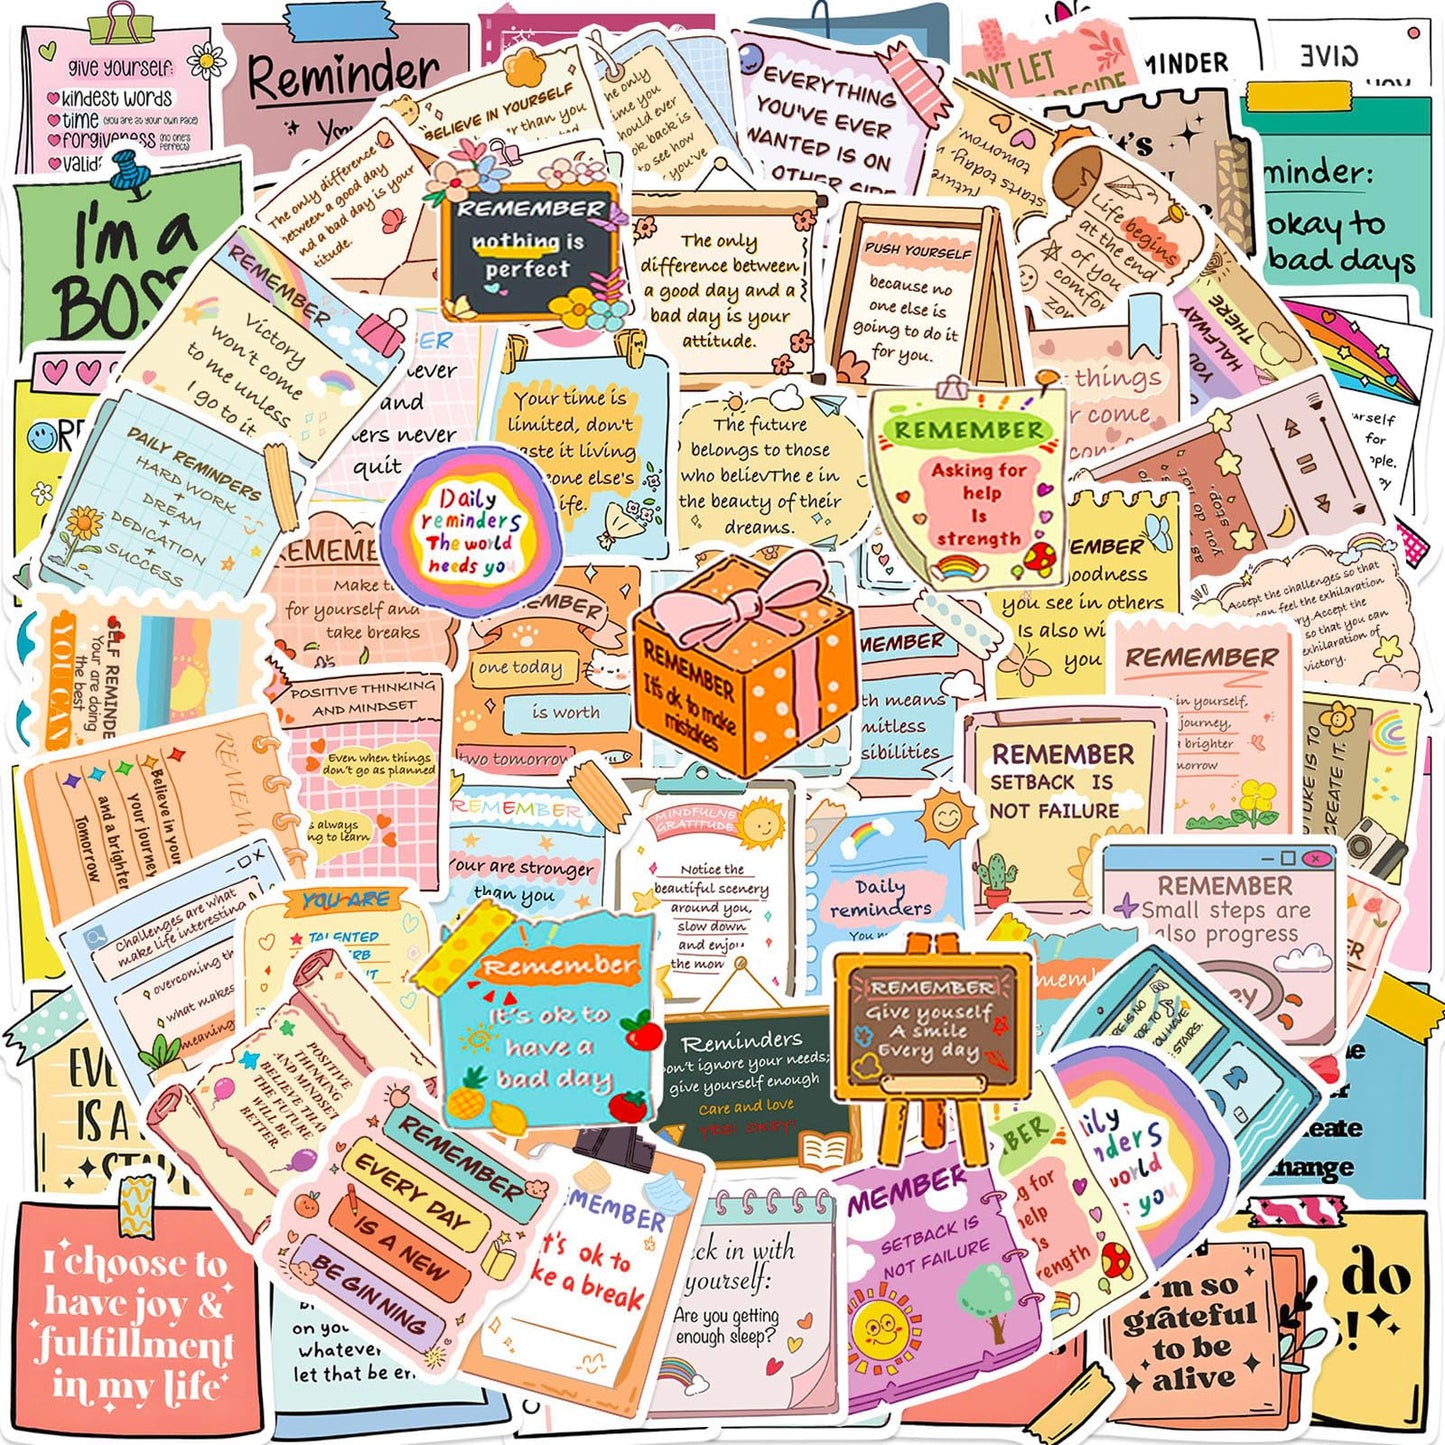 give yourself:
kindest words
time (you are at your own pace)
forgiveness (no one's perfect)
Reminder
BELIEVE IN YOURSELF
than you
he only
time you
should ever
look back is
to see how
you've
EVERYTHING
YOU'VE EVER
WANTED IS ON
OTHER SIDE
LET
DECIDE
MINDER
GIVE
starts today,
tomorrow.
minder:
okay to
bad days
I'm a
BOSS
The only difference
between a good day
and a bad day is your
REMEMBER
nothing is
perfect
The only
difference between
a good day and a
bad day is your
attitude.
PUSH YOURSELF
because no
one else is
going to do it
for you.
Life begins
at the end
of you
comfor
zon
HALFWAY
THERE
REMEMBER
Victory
won't come
to me unless
I go to it
ER
never
and
ers never
quit
Your time is
limited, don't
aste it living
one else's
ife.
The future
belongs to those
who believThe e in
the beauty of their
dreams.
REMEMBER
Asking for
help
Is
strength
things
come
com
urself
for
ople.
DAILY REMINDERS
HARD WORK
+
DREAM
+
DEDICATION
+
SUCCESS
Daily
reminders
The world
needs you
EMEMBE
Make t
for yourself and
take breaks
EMBER
oodness
you see in others
Is also wi
you
you do not
stop.
Accept the challenges so that
can feel the exhilaration
Accept the
so that you can
exhilaration of
victory.
SELF REMINDE
Your are doing
the best
YOU CAN
EMBER
one today
is worth
two tomorrow
REMEMBER
It's ok to make
mistakes
MEMBER
th means
mitless
sibilities
REMEMBER
in yourself,
journey,
a brighter
morrow
POSITIVE THINKING
AND MINDSET
Even when things
don't go as planned
always
ng to learn
REMEM
Believe in your
your journey
and a brighter
Tomorrow
REMEMBER
SETBACK IS
NOT FAILURE
FUTURE IS TO
CREATE IT.
REMEMBER
Your are stronger
than you
MINDFULNE
GRATITUDE
Notice the
beautiful scenery
around you,
slow down
and enjoy
the mom
Daily
reminders
REMEMBER
Small steps are
also progress
Challenges are what
make life interesting
overcoming th
what makes
meaning
YOU ARE
TALENTED
Remember
It's ok to
have a
bad day
Reminders
on't ignore your needs;
give yourself enough
Care and love
REMEMBER
Give yourself
A smile
Every day
mem
RE IS NO
STAIRS.
POSITIVE
THINKING
AND MINDSET
BELIEVE THAT
THE FUTURE
WILL BE
BETTER.
EVE
IS A
STAR
REMEMBER
EVERY DAY
IS A NEW
BEGINNING
MEMBER
t's ok to
ke a break
ck in with
yourself:
Are you getting
enough sleep?
MEMBER
SETBACK IS
NOT FAILURE
BER
ng for
help
Is
rength
aily
nders
world
s you
eate
hange
I choose to
have joy &
fulfillment
in my life
on you
whatever
let that be en
I'm so
grateful
to be
alive
do
!